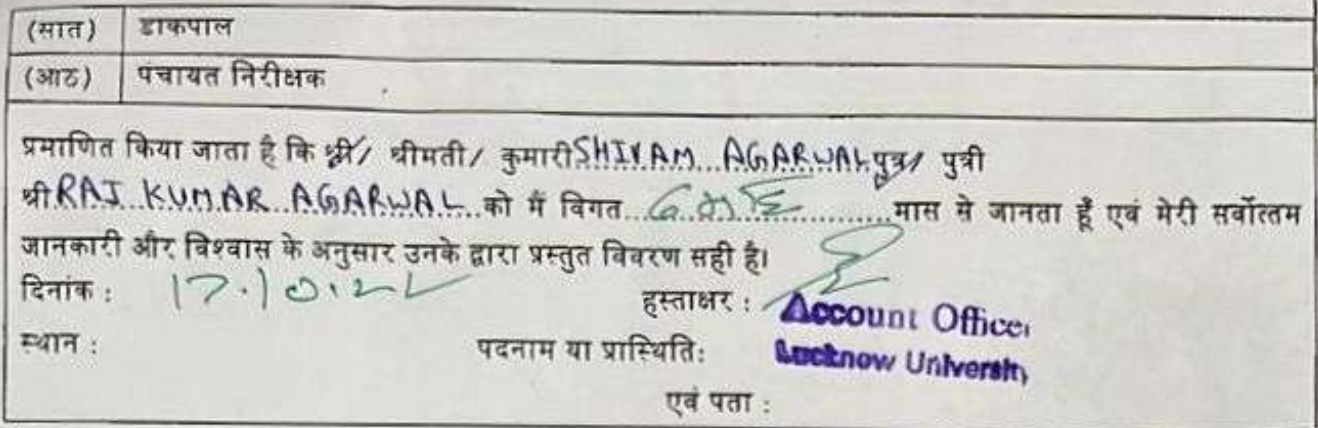 (सात) डाकपाल
(आठ) पंचायत निरीक्षक
प्रमाणित किया जाता है कि श्री/ श्रीमती/ कुमारी SHIVAM AGARWAL पुत्र/ पुत्री
श्री RAJ KUMAR AGARWAL को मैं विगत मास से जानता हूँ एवं मेरी सर्वोत्तम
जानकारी और विश्वास के अनुसार उनके द्वारा प्रस्तुत विवरण सही है।
दिनांक : 17.10.22 हस्ताक्षर :
Account Officer
स्थान : पदनाम या प्रास्थिति:
Lucknow University
एवं पता :